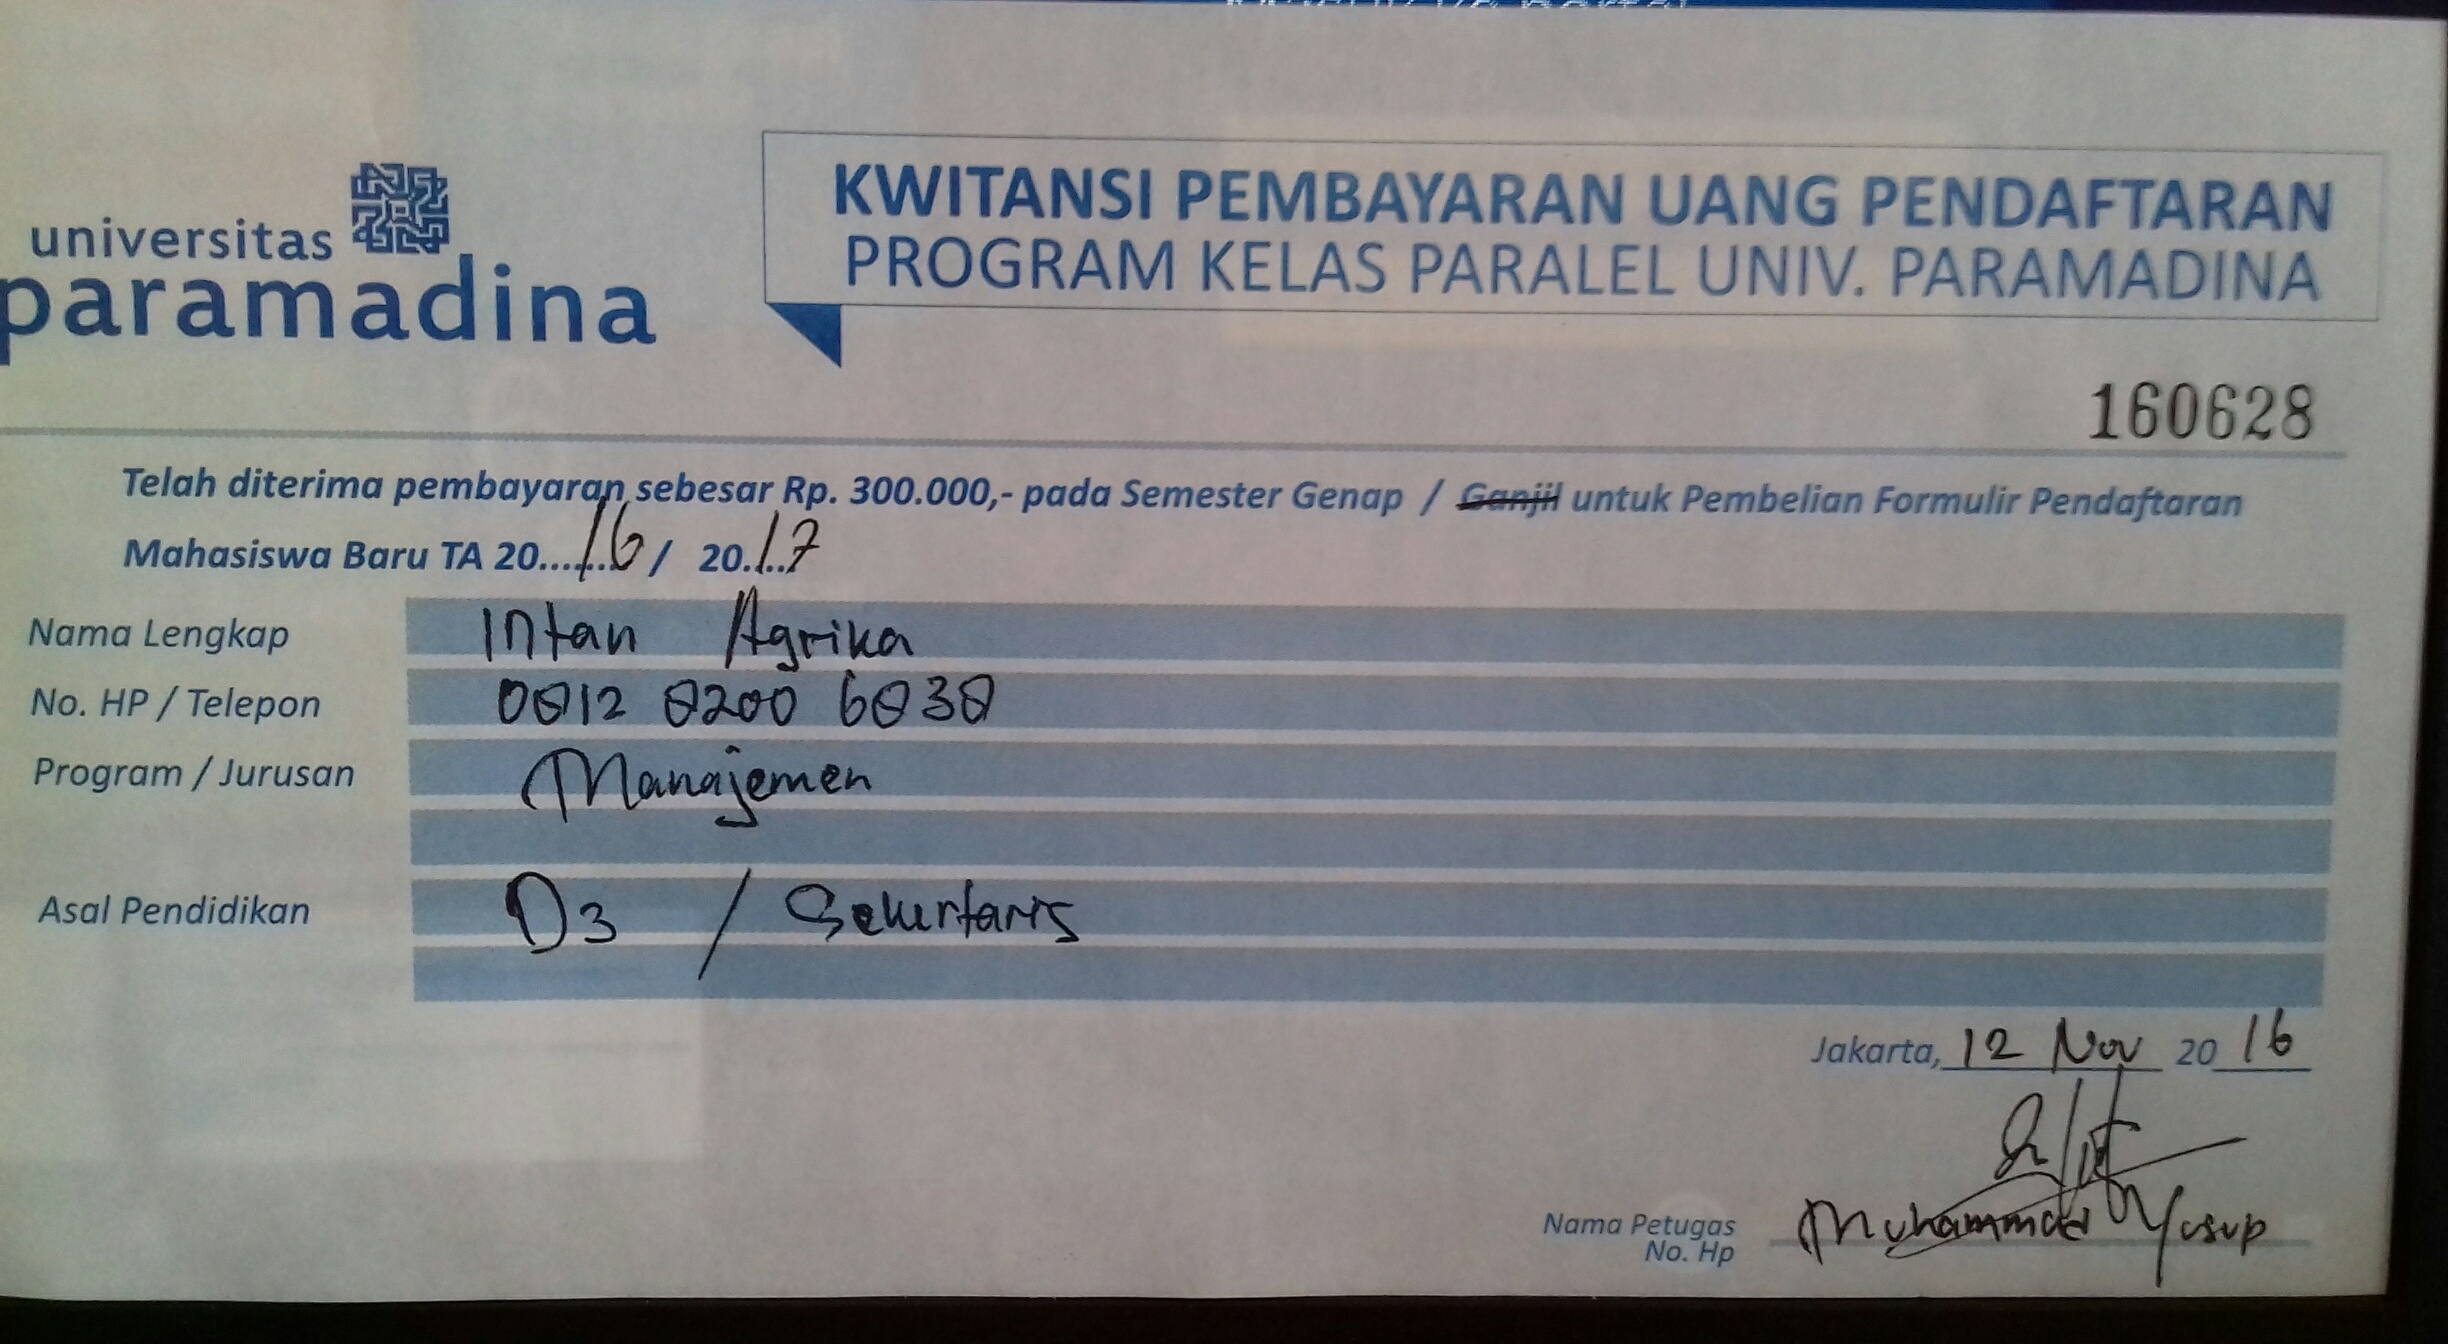 universitas
paramadina
KWITANSI PEMBAYARAN UANG PENDAFTARAN
PROGRAM KELAS PARALEL UNIV. PARAMADINA
160628
Telah diterima pembayaran sebesar Rp. 300.000,- pada Semester Genap / Ganjil untuk Pembelian Formulir Pendaftaran
Mahasiswa Baru TA 20...16/ 20.17
Nama Lengkap Intan Agrika
No. HP / Telepon 0812 8200 6838
Program / Jurusan Manajemen
Asal Pendidikan D3 / Sekertaris
Jakarta, 12 Nov 20 16
Nama Petugas Muhammad Yusup
No. Hp